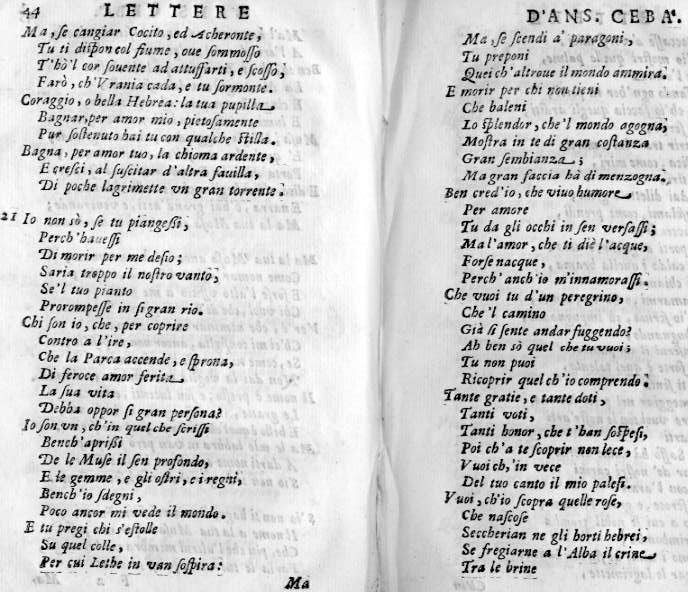 44 LETTERE
Ma, se cangiar Cocito, ed Acheronte,
Tu ti dispon col fiume, oue sommosso
T'hò'l cor souente ad attuffarti, e scosso,
Farò, ch'Vrania cada, e tu sormonte.
Coraggio, o bella Hebrea: la tua pupilla
Bagnar, per amor mio, pietosamente
Pur sostenuto hai tu con qualche stilla.
Bagna, per amor tuo, la chioma ardente,
E cresci, al suscitar d'altra fauilla,
Di poche lagrimette vn gran torrente.
21 Io non sò, se tu piangessi,
Perch'hauessi
Di morir per me desio;
Saria troppo il nostro vanto,
Se'l tuo pianto
Prorompesse in sì gran rio.
Chi son io, che, per coprire
Contro a l'ire,
Che la Parca accende, e sprona,
Di feroce amor ferita
La sua vita
Debba oppor sì gran persona?
Io son vn, ch'in quel che scrissi
Bench'aprissi
De le Muse il sen profondo,
E le gemme, e gli ostri, e i regni,
Bench'io sdegni,
Poco ancor mi vede il mondo.
E tu pregi chi s'estolle
Su quel colle,
Per cui Lethe in van sospira:
Ma
D'ANS. CEBA'.
Ma, se scendi a' paragoni,
Tu preponi
Quei ch'altroue il mondo ammira.
E morir per chi non tieni
Che baleni
Lo splendor, che'l mondo agogna,
Mostra in te di gran costanza
Gran sembianza;
Ma gran faccia hà di menzogna.
Ben cred'io, che viuo humore
Per amore
Tu da gli occhi in sen versassi;
Ma l'amor, che ti diè l'acque,
Forse nacque,
Perch'anch'io m'innamorassi.
Che vuoi tu d'un peregrino,
Che'l camino
Già si sente andar fuggendo?
Ah ben sò quel che tu vuoi;
Tu non puoi
Ricoprir quel ch'io comprendo.
Tante gratie, e tante doti,
Tanti voti,
Tanti honor, che t'han sospesi,
Poi ch'a te scoprir non lece,
Vuoi ch, 'in vece
Del tuo canto il mio palesi.
Vuoi, ch'io scopra quelle rose,
Che nascose
Seccherian ne gli horti hebrei,
Se fregiarne a l'Alba il crine
Tra le brine